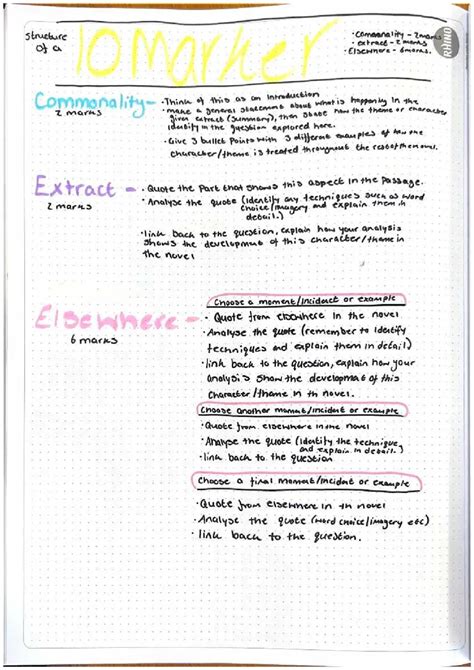 Structure of a
10 marker
· Commonality - 2 marks
· extract - 2 marks
· Elsewhere - 6 marks
RHINO
Commonality -
2 marks
· Think of this as an introduction
· make a general statement about what is happenly in the
given extract (summary), then state how the theme or character
identify in the question explored here.
· Give 3 bullet points with 3 different examples of how the
character/theme is treated throughout the rest of the novel.
Extract -
2 marks
· Quote the part that shows this aspect in the passage.
· Analyse the quote (identify any techniques such as word
choice/imagery and explain them in
detail.)
· link back to the question, explain how your analysis
shows the development of this character/theme in
the novel
Elsewhere -
6 marks
Choose a moment/incident or example
· Quote from elsewhere in the novel
· Analyse the quote (remember to identify
techniques and explain them in detail)
· link back to the question, explain how your
analysis show the development of this
character/theme in th novel.
Choose another moment/incident or example
· Quote from elsewhere in the novel
· Analyse the quote (identify the technique
and explain in detail.)
· link back to the question
Choose a final moment/incident or example
· Quote from elsewhere in th novel
· Analyse the quote (word choice/imagery etc)
· link back to the question.